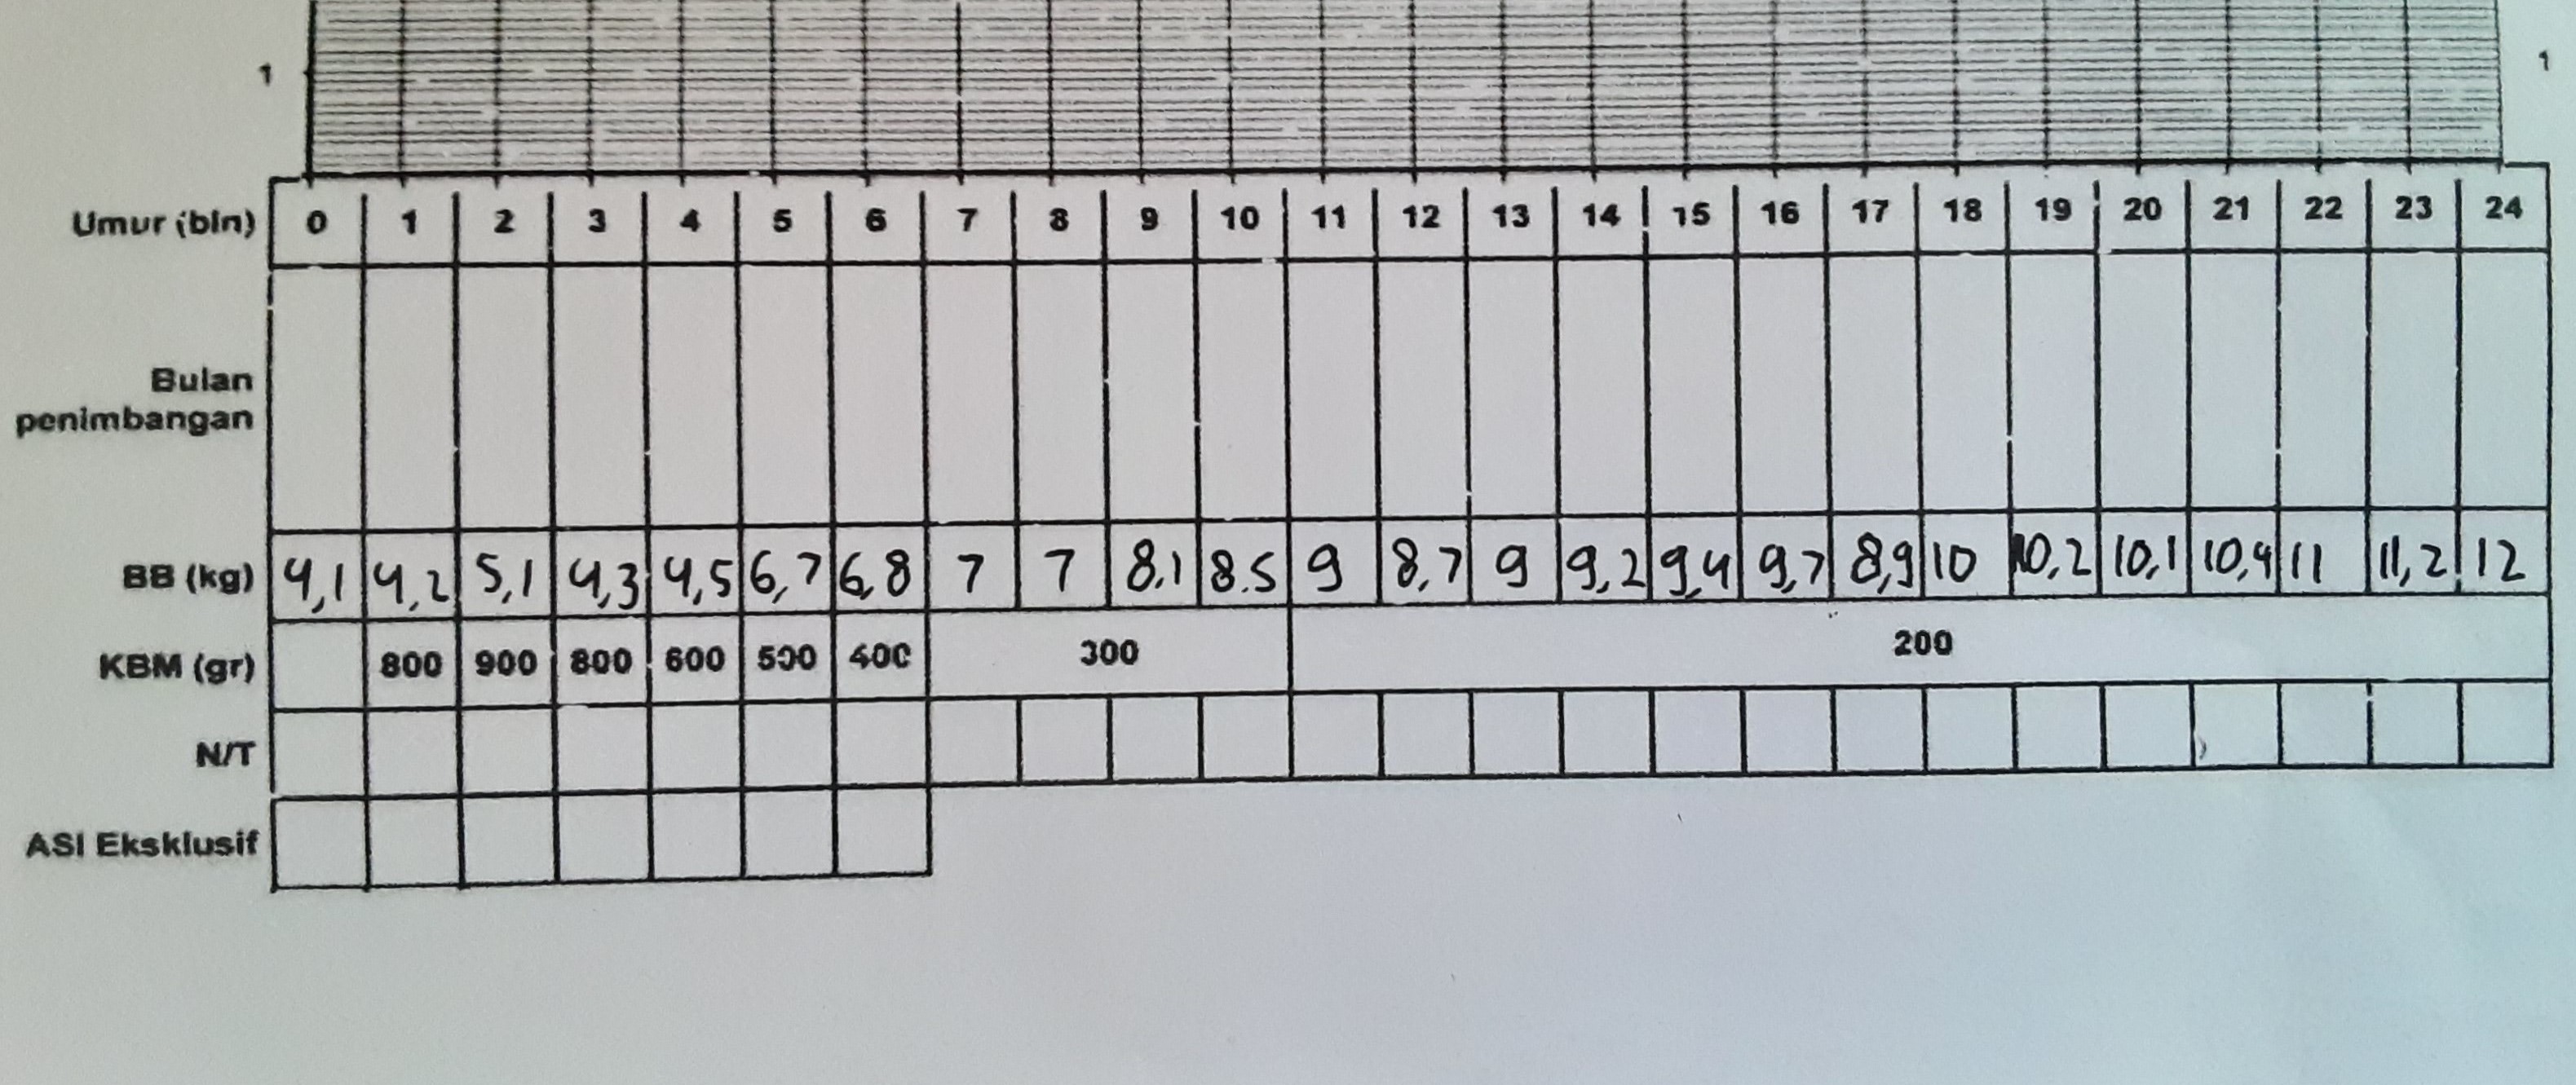 1 1
Umur (bln) 0 1 2 3 4 5 6 7 8 9 10 11 12 13 14 15 16 17 18 19 20 21 22 23 24
Bulan
penimbangan
BB (kg) 4,1 4,2 5,1 4,3 4,5 6,7 6,8 7 7 8,1 8.5 9 8,7 9 9,2 9,4 9,7 8,9 10 10,2 10,1 10,4 11 11,2 12
KBM (gr) 800 900 800 600 500 400 300 200
N/T
ASI Eksklusif